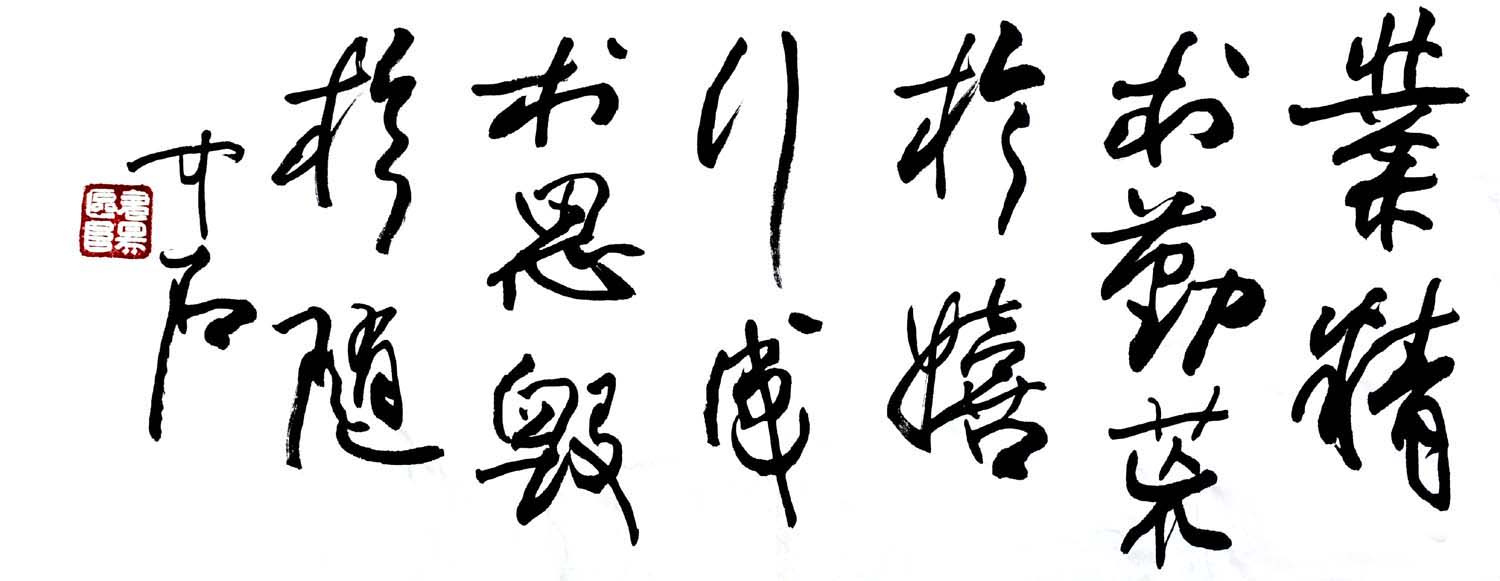 業精
於勤荒
於嬉
行成
於思毀
於隨
中石